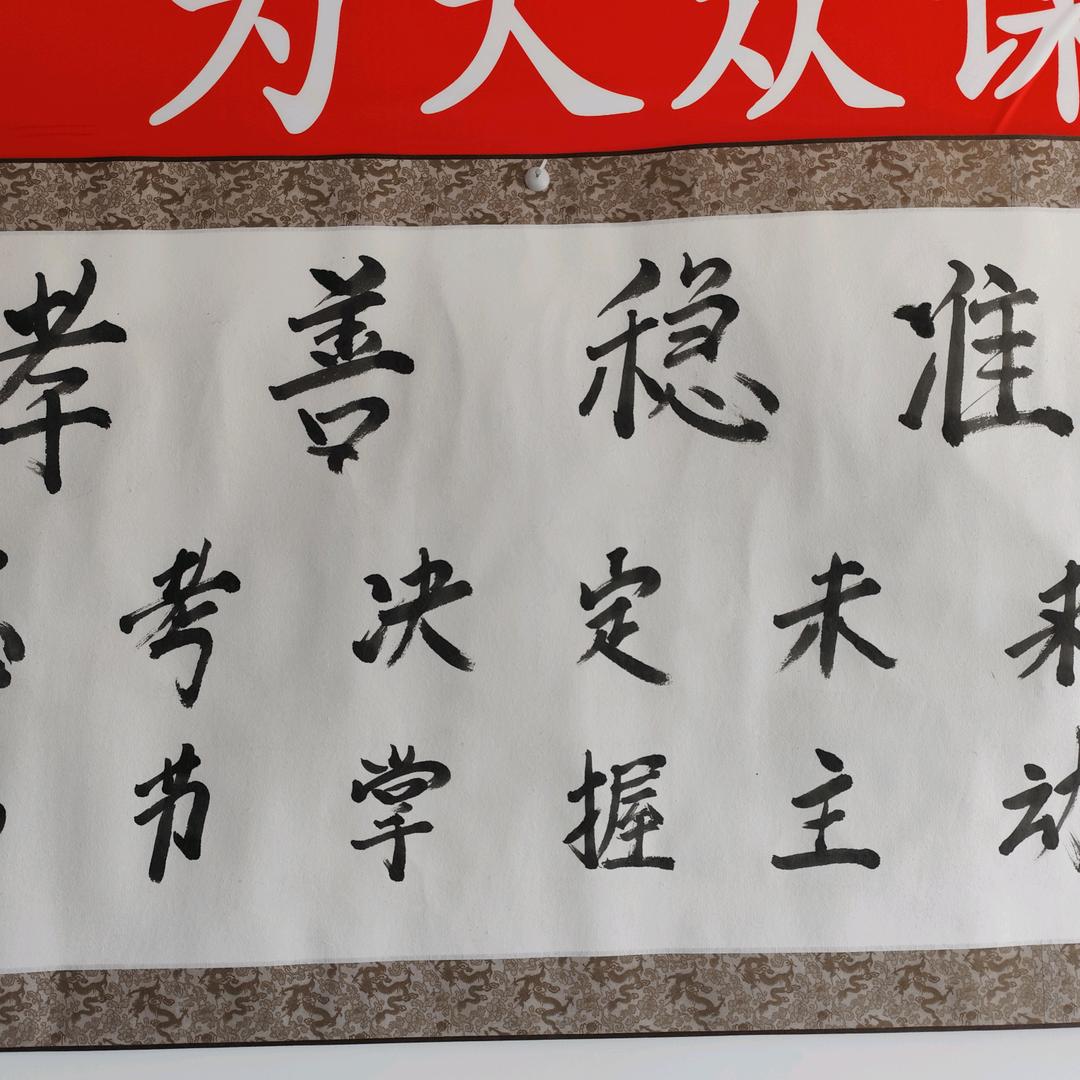 为大众谋
孝善稳准
考决定未来
节掌握主动